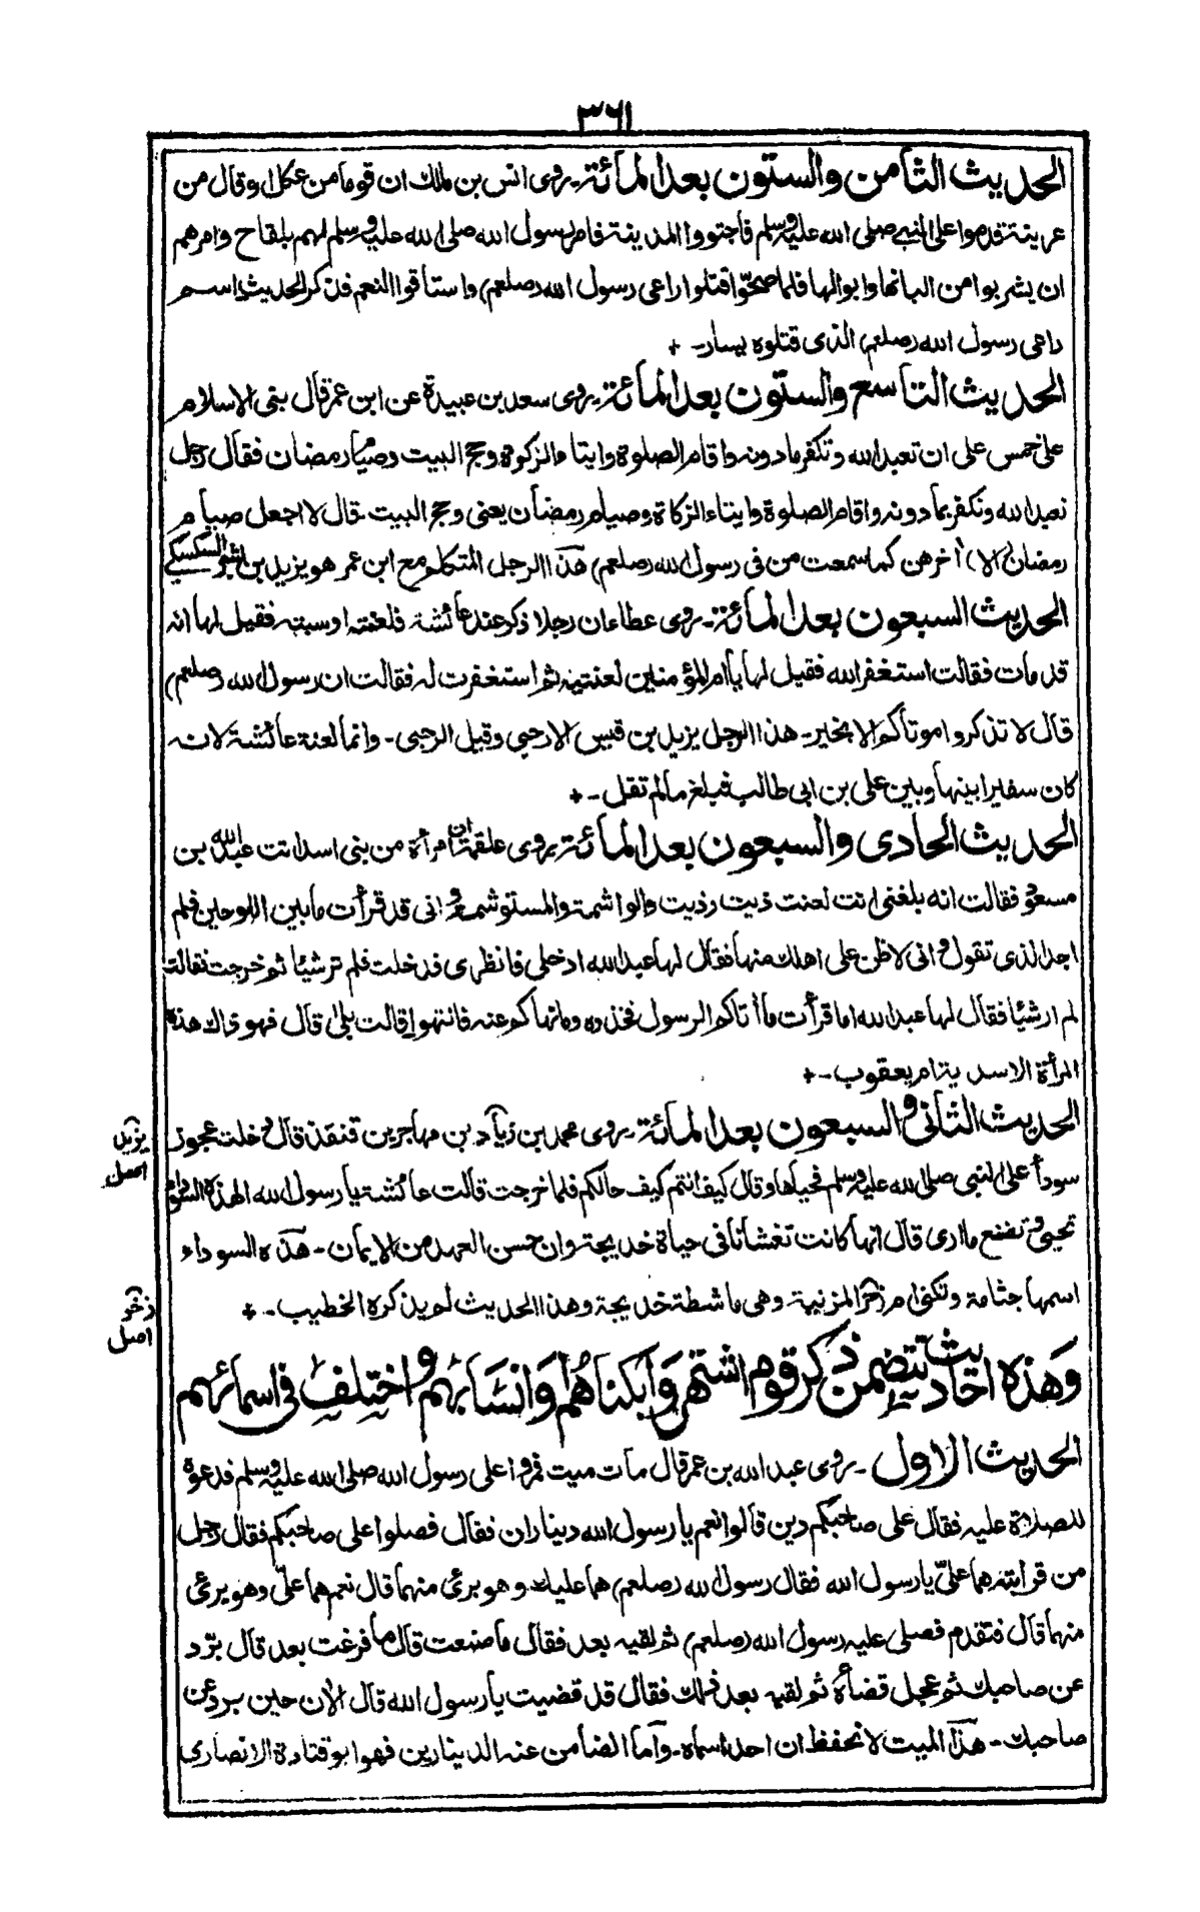 ٣٦١
الحديث الثامن والستون بعد المائة - روى انس بن مالك ان قوما من عكل او قال من
عرينة قدموا على النبي صلى الله عليه وسلم فاجتووا المدينة فامر رسول الله صلى الله عليه وسلم لهم بلقاح وامرهم
ان يشربوا من البانها وابوالها فلما صحوا قتلوا راعي رسول الله (صلعم) واستاقوا النعم فذكر الحديث اسم
راعى رسول الله (صلعم) الذى قتلوه يسار - +
الحديث التاسع والستون بعد المائة - روى سعد بن عبيدة عن ابن عمر قال بنى الاسلام
على خمس على ان تعبد الله وتكفر ما دونه واقام الصلوة وايتاء الزكوة وحج البيت وصيام رمضان فقال رجل
نعبد الله ونكفر بما دونه واقام الصلوة وايتاء الزكاة وصيام رمضان يعنى وحج البيت - قال لا اجعل صيام
رمضان (الا) آخرهن كما سمعت من فى رسول الله (صلعم) هذا الرجل المتكلم مع ابن عمر هو يزيد بن بشر السكسكي
الحديث السبعون بعد المائة - روى عطاء ان رجلا ذكر عند عائشة فلعنته او سبته فقيل لها انه
قد مات فقالت استغفر الله فقيل لها يا ام المؤمنين لعنتيه ثم استغفرت له فقالت ان رسول الله (صلعم)
قال لا تذكروا موتاكم الا بخير - هذا الرجل يزيد بن قيس الارحبي وقيل الرحبى - وانما لعنة عائشة لانه
كان سفيرا بينها وبين على بن ابى طالب فبلغ ما لم تقل - +
الحديث الحادى والسبعون بعد المائة روى علقمة ان امرأة من بنى اسد اتت عبد الله بن
مسعود فقالت انه بلغنى انت لعنت ذيت وذيت والواشمة والمستوشمة و انى قد قرأت ما بين اللوحين فلم
اجد الذى تقول و انى لاظن على اهلك منها فقال لها عبد الله ادخلى فانظرى فدخلت فلم تر شيئا ثم خرجت فقالت
لم ار شيئا فقال لها عبد الله اما قرأت ما أتاكم الرسول فخذوه وما نهاكم عنه فانتهوا قالت بلى قال فهو ذاك هذه
المرأة الاسدية ام يعقوب - +
الحديث الثانى و السبعون بعد المائة - روى محمد بن زياد بن مهاجر بن قنفذ قال دخلت عجوز
يزيد
اصل
سودأ على النبى صلى الله عليه وسلم فحياها وقال كيف انتم كيف حالكم فلما خرجت قالت عائشة يا رسول الله الهذه السوداء
تحيي و تصنع ما ارى قال انها كانت تغشانا فى حياة خديجة وان حسن العهد من الايمان - هذه السوداء
اسمها جثامة وتكنى ام زخر المزنية وهى ماشطة خديجة وهذا الحديث لم يذكره الخطيب - +
زخر
اصل
وهذه احاديث تتضمن ذكر قوم اشتهروا بكناهم وانسابهم و اختلف فى اسمائهم
الحديث الاول - روى عبد الله بن عمر قال مات ميت فمروا على رسول الله صلى الله عليه وسلم فدعوه
للصلاة عليه فقال على صاحبكم دين قالوا نعم يا رسول الله ديناران فقال فصلوا على صاحبكم فقال رجل
من قرابته هما علىّ يا رسول الله فقال رسول الله (صلعم) هما عليك وهو برئ منهما قال نعم هما علىّ وهو برئ
منهما قال فتقدم فصلى عليه رسول الله (صلعم) ثم لقيه بعد فقال ما صنعت قال ما فرغت بعد قال برّد
عن صاحبك ثم عجل قضاءه ثم لقيه بعد ذلك فقال قد قضيت يا رسول الله قال الان حين برد عن
صاحبك - هذا الميت لا نحفظ ان احدا سماه - واما الضامن عنه الدينارين فهو ابو قتادة الانصارى